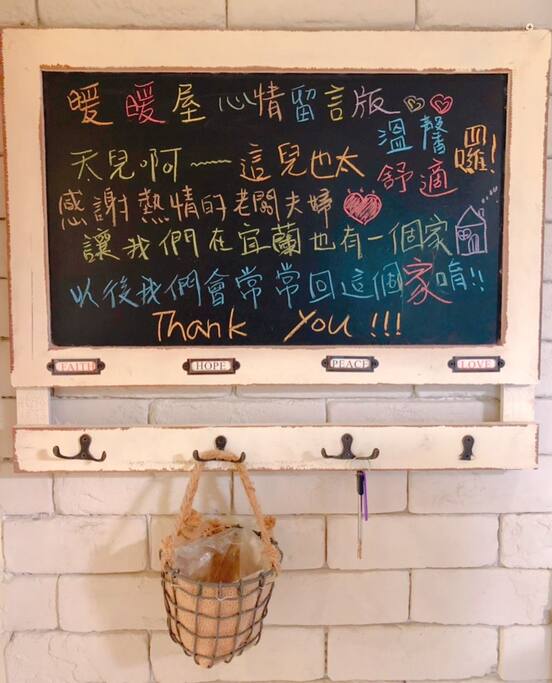 暖暖屋心情留言版
天兒啊~~~這兒也太
溫馨
舒適
囉!
感謝熱情的老闆夫婦
讓我們在宜蘭也有一個家
以後我們會常常回這個家唷!!
Thank You!!!
FAITH HOPE PEACE LOVE